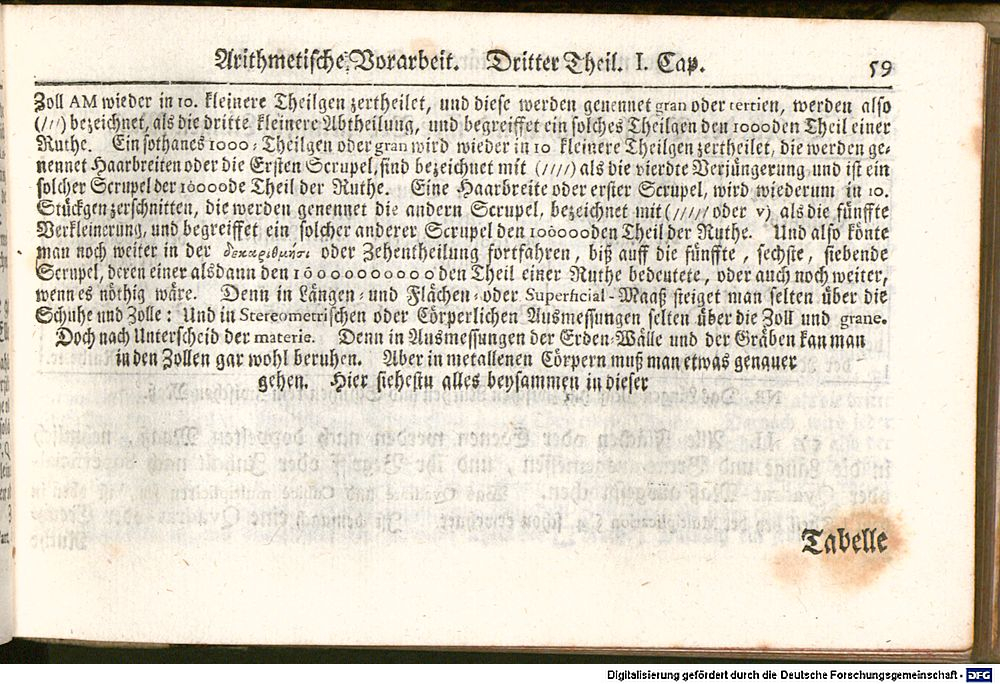 Arithmetische Vorarbeit. Dritter Theil. I. Cap. 59
Zoll AM wieder in 10. kleinere Theilgen zertheilet, und diese werden genennet gran oder tertien, werden also
(///) bezeichnet, als die dritte kleinere Abtheilung, und begreiffet ein solches Theilgen den 1000den Theil einer
Ruthe. Ein sothanes 1000: Theilgen oder gran wird wieder in 10 kleinere Theilgen zertheilet, die werden ge-
nennet Haarbreiten oder die Ersten Scrupel, sind bezeichnet mit (////) als die vierdte Verjüngerung und ist ein
solcher Scrupel der 10000de Theil der Ruthe. Eine Haarbreite oder erster Scrupel, wird wiederum in 10.
Stückgen zerschnitten, die werden genennet die andern Scrupel, bezeichnet mit (///// oder v) als die fünffte
Verkleinerung, und begreiffet ein solcher anderer Scrupel den 100000den Theil der Ruthe. Und also könte
man noch weiter in der δεκαριθμήσι oder Zehentheilung fortfahren, biß auff die fünffte, sechste, siebende
Scrupel, deren einer alsdann den 10000000000den Theil einer Ruthe bedeutete, oder auch noch weiter,
wenn es nöthig wäre. Denn in Längen- und Flächen- oder Superficial-Maaß steiget man selten über die
Schuhe und Zolle: Und in Stereometrischen oder Cörperlichen Ausmessungen selten über die Zoll und grane.
Doch nach Unterscheid der materie. Denn in Ausmessungen der Erden-Wälle und der Gräben kan man
in den Zollen gar wohl beruhen. Aber in metallenen Cörpern muß man etwas genauer
gehen. Hier siehestu alles beysammen in dieser
Tabelle
Digitalisierung gefördert durch die Deutsche Forschungsgemeinschaft - DFG